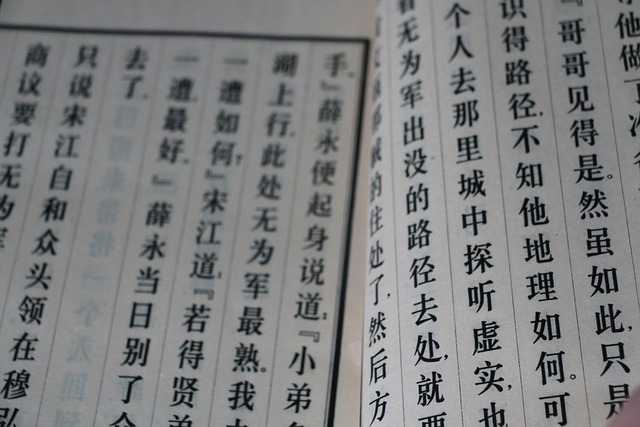 他做
『哥哥见得是。然虽如此,只是
识得路径,不知他地理如何。可
个人去那里城中探听虚实,也
看无为军出没的路径去处,就要
贼的住处了,然后方
手。』薛永便起身说道:『小弟
湖上行。此处无为军最熟。我
一遭如何?』宋江道:『若得贤弟
一遭最好。』薛永当日别了
去了。
只说宋江自和众头领在穆弘
商议要打无为军